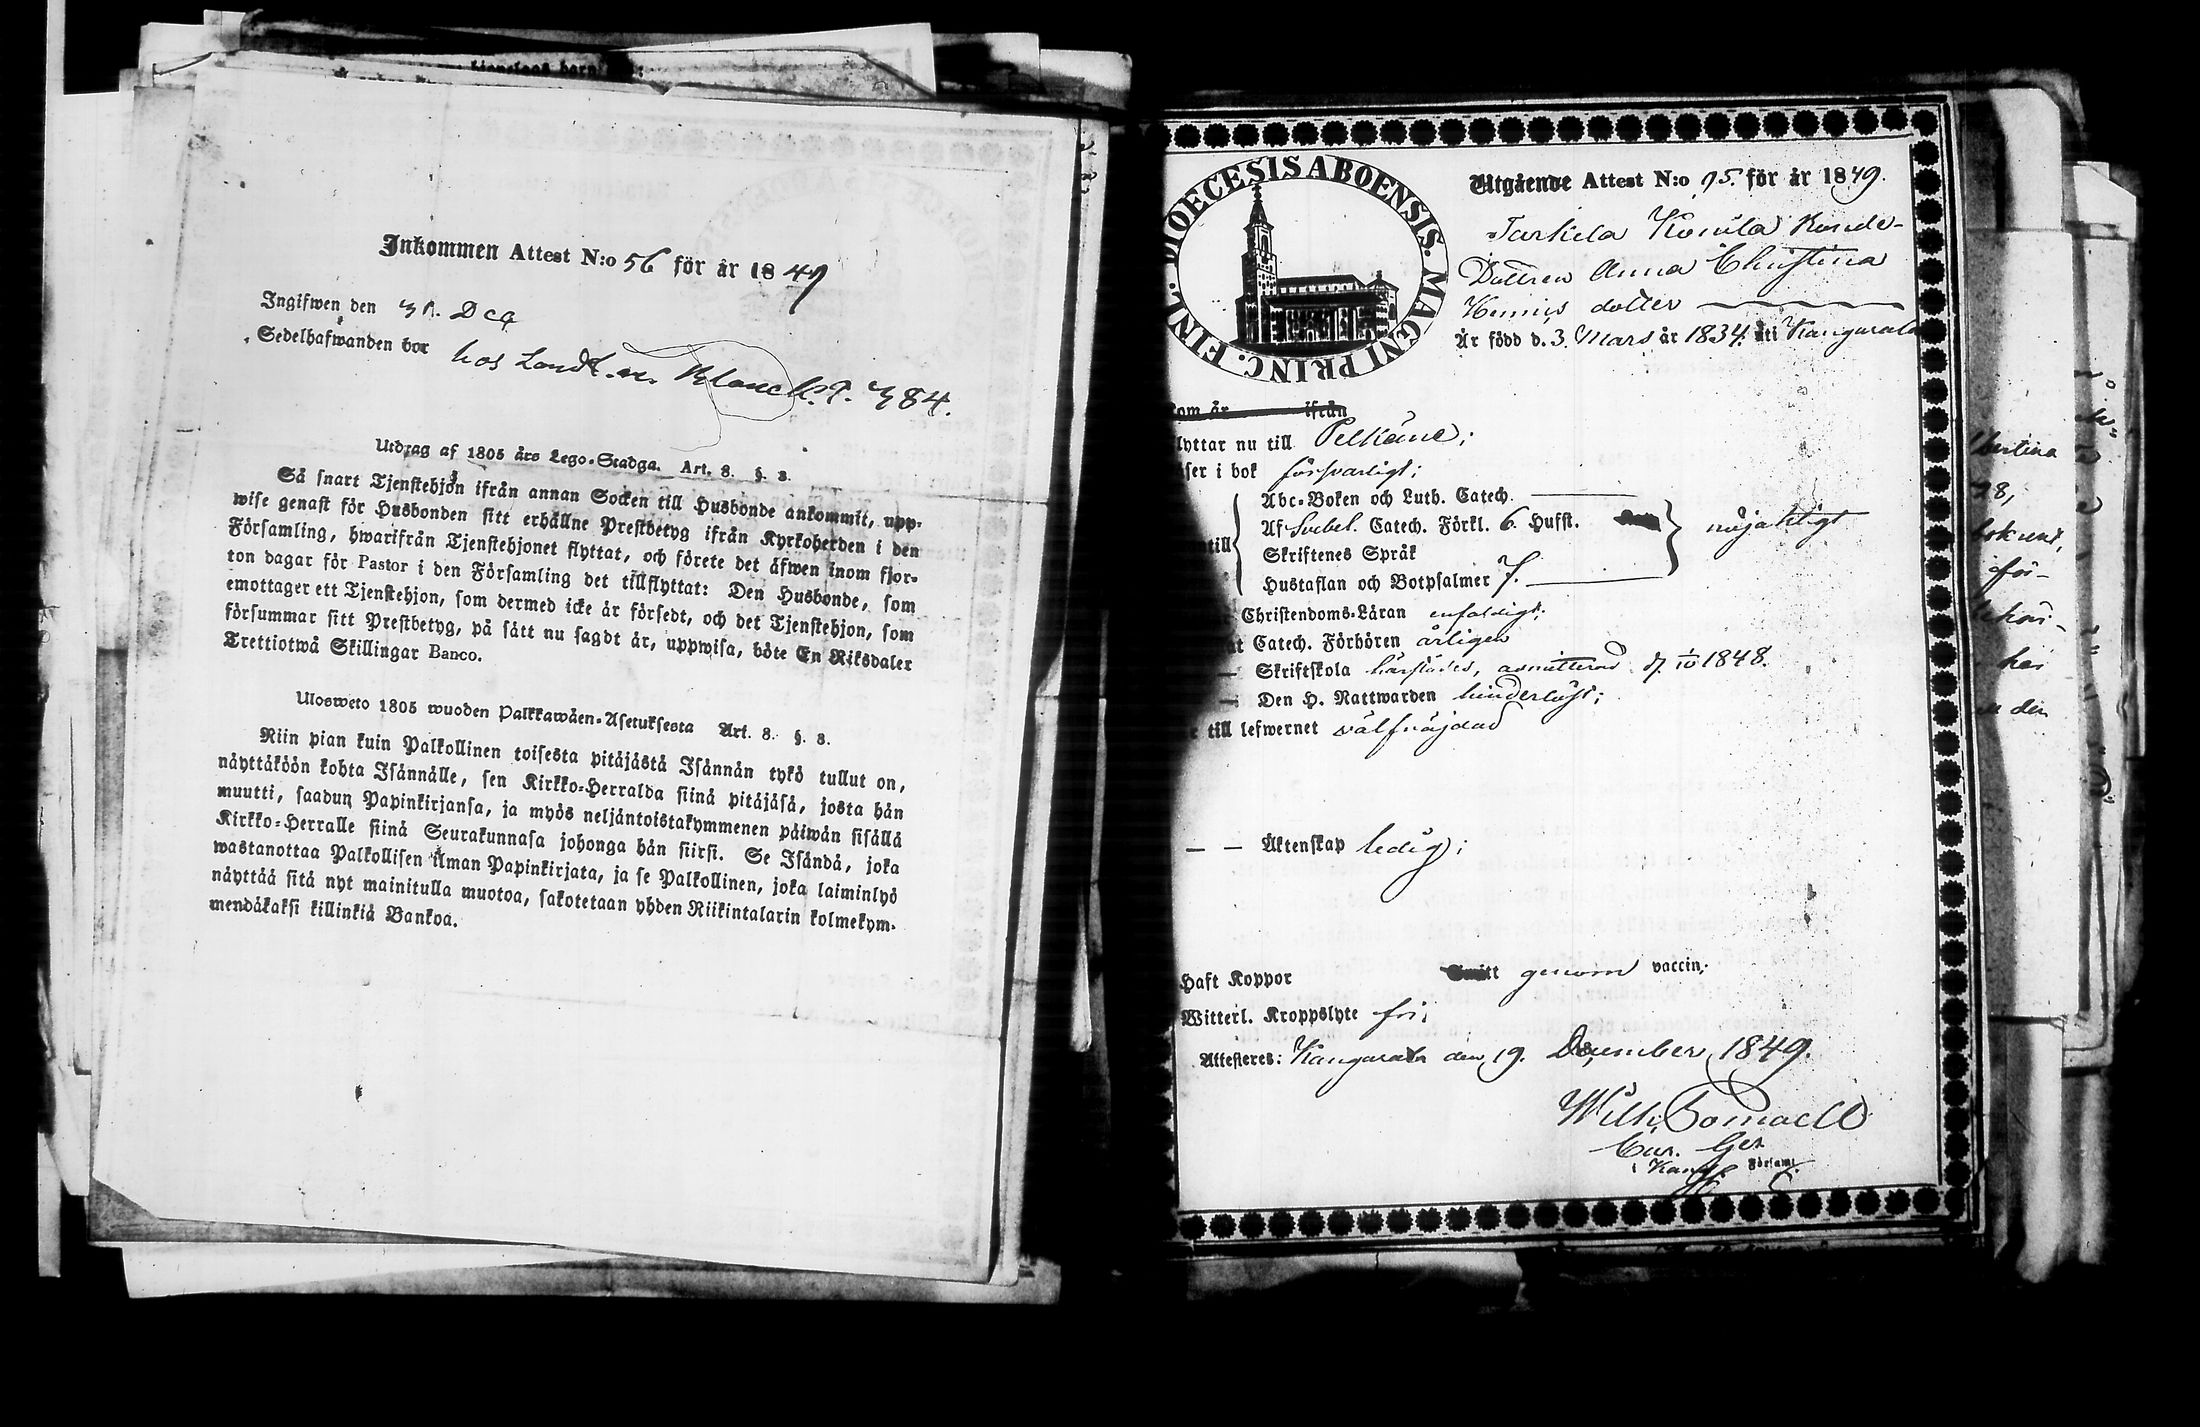 Inkommen Attest N:o 56 för år 1849
Ingifwen den 31. Dec
Sedelhafwanden bor hos Landt.
384.
Utdrag af 1805 års Lego-Stadga. Art. 8. §. 8.
Så snart Tjenstehjon ifrån annan Socken till Husbonde ankommit, upp-
wise genast för Husbonden sitt erhållne Prestbetyg ifrån Kyrkoherden i den
Församling, hwarifrån Tjenstehjonet flyttat, och förete det äfwen inom fjor-
ton dagar för Pastor i den Församling det tillflyttat: Den Husbonde, som
emottager ett Tjenstehjon, som dermed icke är försedt, och det Tjenstehjon, som
försummar sitt Prestbetyg, på sätt nu sagdt är, uppwisa, böte En Riksdaler
Trettiotwå Skillingar Banco.
Ulosweto 1805 wuoden Palkkawäen-Asetuksesta Art. 8. §. 8.
Niin pian kuin Palkollinen toisesta pitäjästä Isännän tykö tullut on,
näyttäköön kohta Isännälle, sen Kirkko-Herralda siinä pitäjäsä, josta hän
muutti, saadun Papinkirjansa, ja myös neljäntoistakymmenen päiwän sisällä
Kirkko-Herralle siinä Seurakunnasa johonga hän siirsi. Se Isändä, joka
wastanottaa Palkollisen ilman Papinkirjata, ja se Palkollinen, joka laiminlyö
näyttää sitä nyt mainitulla muotoa, sakotetaan yhden Riikintalarin kolmekym-
mendäkaksi killinkiä Bankoa.
FINL. DIOECESIS ABOENSIS. MAGNI PRINC.
Utgående Attest N:o 75. för år 1849.
Tarkila Konila Bonde-
Dottren Anna Christina
Henrics dotter
Är född d. 3. Mars år 1834. uti Kangasala
kom år ifrån
flyttar nu till Pelkäne;
läser i bok försvarligt;
Abc-Boken och Luth. Catech.
Af Svebel. Catech. Förkl. 6. Hufst.
Skriftenes Språk
Hustaflan och Botpsalmer 7.
nöjaktigt
Christendoms-Läran enfaldigt;
Catech. Förhören årligen
— Skriftskola härstädes, admitterad d. 1/10 1848.
— Den H. Nattwarden hinderlöst;
till lefwernet välfräjdad
— — Äktenskap ledig;
Haft Koppor genom vaccin;
Witterl. Kroppslyte fri;
Attesteres: Kangasala den 19. December 1849.
Församl.